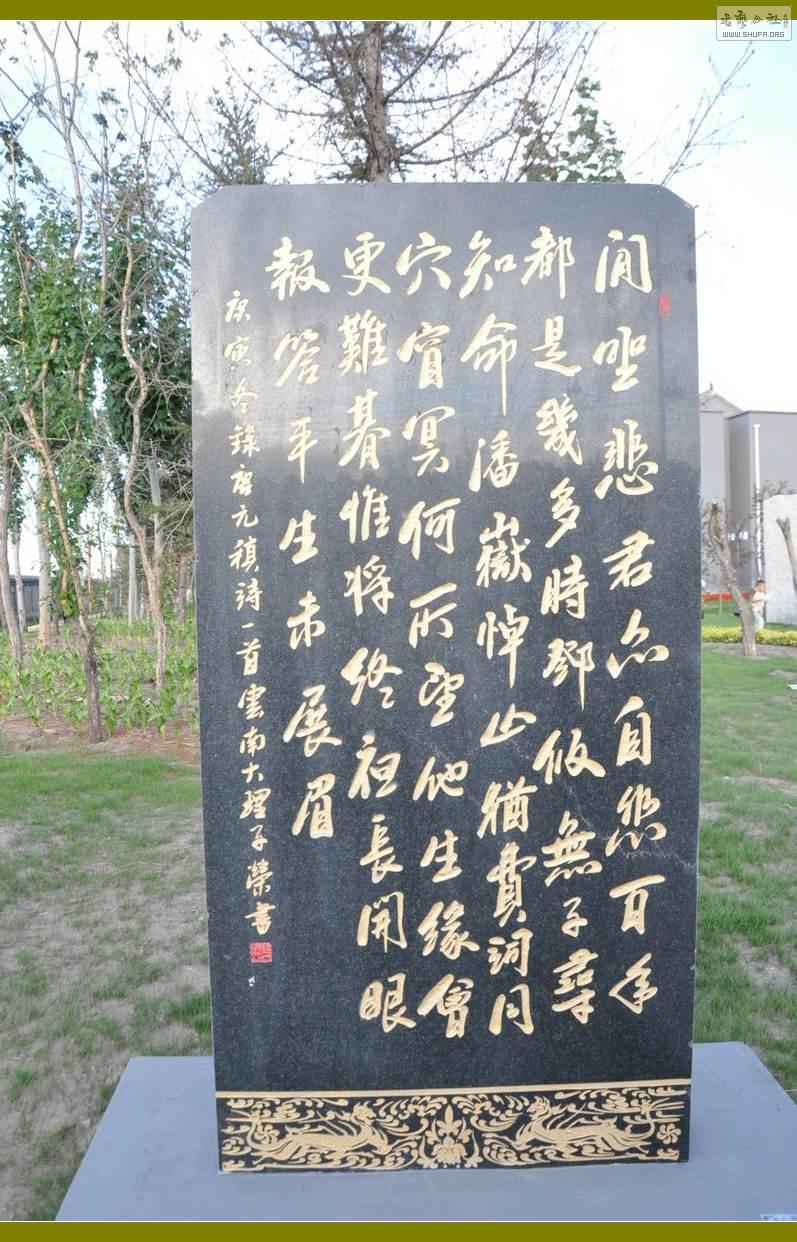 閒坐悲君亦自悲百年
都是幾多時鄧攸無子尋
知命潘嶽悼亡猶費詞同
穴窅冥何所望他生緣會
更難朞惟將終夜長開眼
報答平生未展眉
庚寅冬錄唐元稹詩一首雲南大理子榮書
WWW.SHUFA.ORG